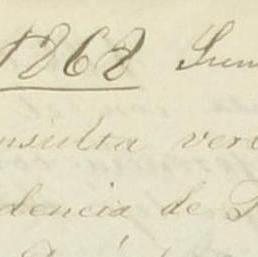 1868 Sum
nsulta ver
dencia de